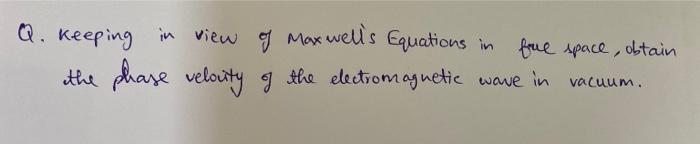 Q. Keeping in view of Maxwell's Equations in free space, obtain
the phase velocity of the electromagnetic wave in vacuum.